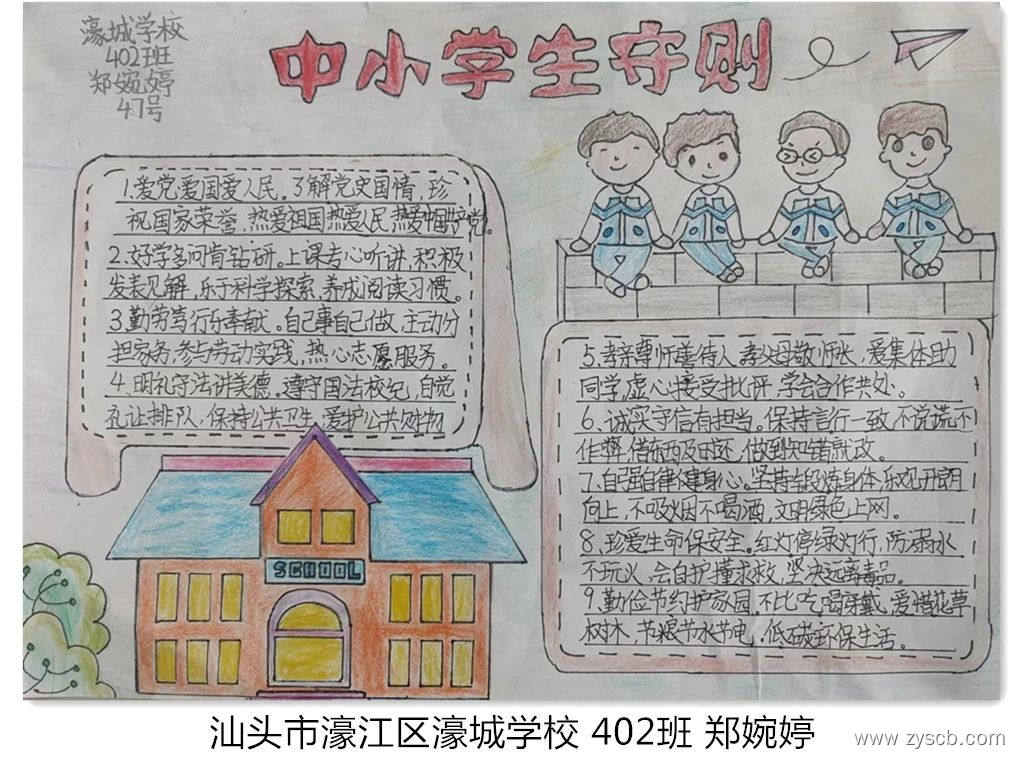 濠城学校
402班
郑婉婷
47号
中小学生守则
1.爱党爱国爱人民。了解党史国情,珍
视国家荣誉,热爱祖国,热爱人民,热爱中国共产党。
2.好学多问肯钻研。上课专心听讲,积极
发表见解,乐于科学探索,养成阅读习惯。
3.勤劳笃行乐奉献。自己事自己做,主动分
担家务,参与劳动实践,热心志愿服务。
4.明礼守法讲美德。遵守国法校纪,自觉
礼让排队,保持公共卫生,爱护公共财物
5.孝亲尊师善待人,孝父母敬师长,爱集体助
同学,虚心接受批评,学会合作共处。
6.诚实守信有担当。保持言行一致,不说谎不
作弊,借东西及时还,做到知错就改。
7.自强自律健身心。坚持锻炼身体,乐观开朗
向上,不吸烟不喝酒,文明绿色上网。
8.珍爱生命保安全。红灯停绿灯行,防溺水
不玩火,会自护懂求救,坚决远离毒品。
9.勤俭节约护家园,不比吃喝穿戴,爱惜花草
树木,节粮节水节电,低碳环保生活。
SCHOOL
汕头市濠江区濠城学校 402班 郑婉婷
www.zyscb.com